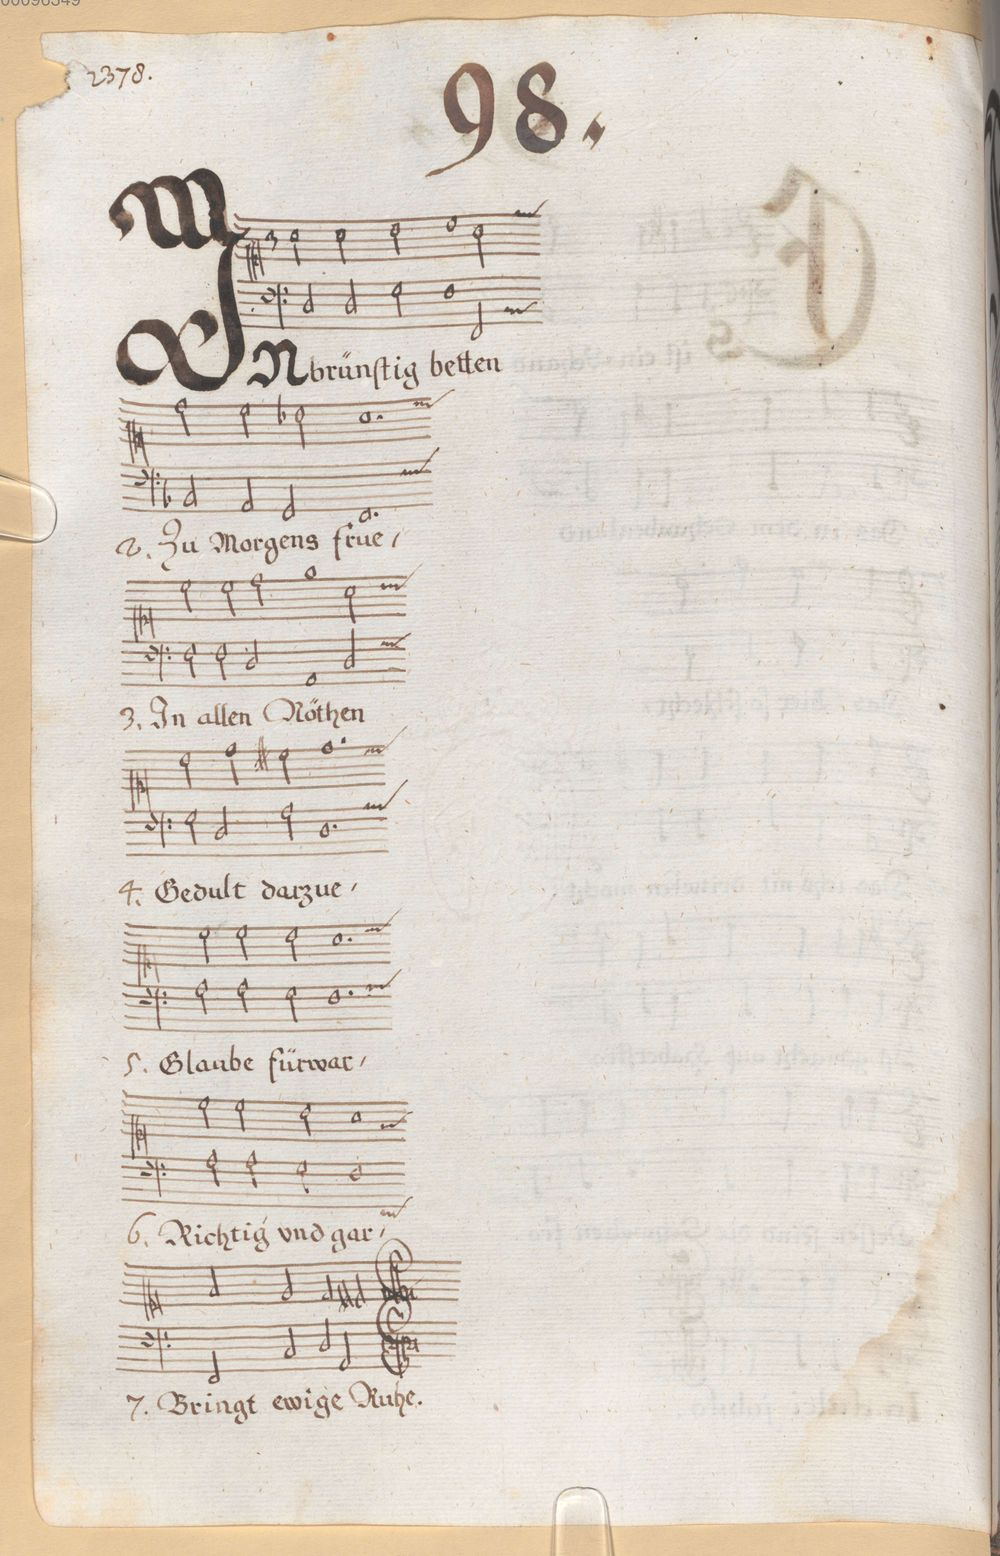 00096349
2378.
98.
INbrünstig betten
2. Zu Morgens frue,
3. In allen Nöthen
4. Gedult darzue,
5. Glaube fürwar,
6. Richtig vnd gar,
7. Bringt ewige Ruhe.